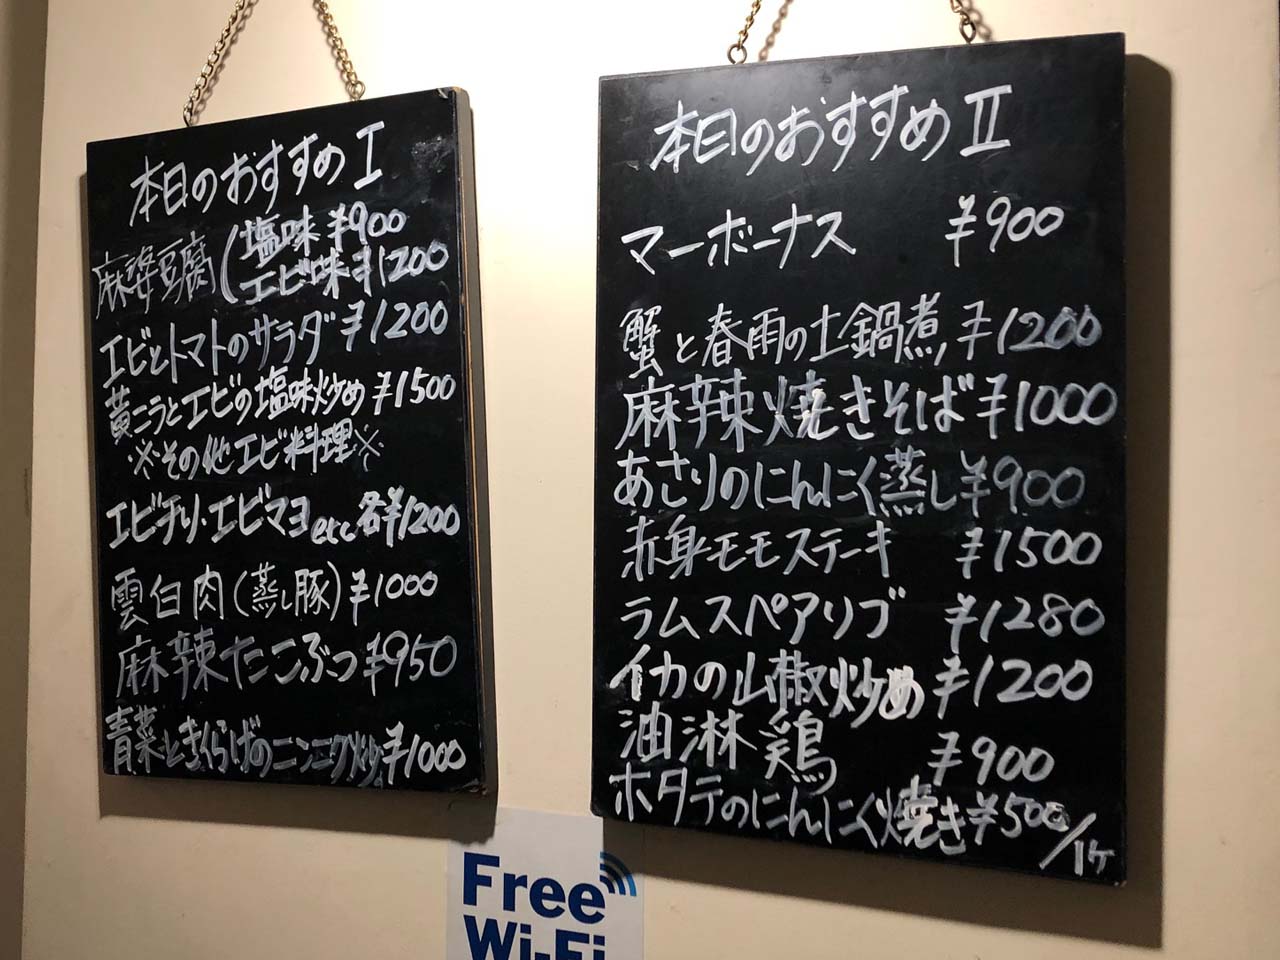 本日のおすすめⅠ
麻婆豆腐(塩味 ¥900
エビ味 ¥1200
エビとトマトのサラダ ¥1200
黄ニラとエビの塩味炒め ¥1500
※その他エビ料理※
エビチリ・エビマヨetc 各¥1200
雲白肉(蒸し豚) ¥1000
麻辣たこぶつ ¥950
青菜ときくらげのニンニク炒 ¥1000
本日のおすすめⅡ
マーボーナス ¥900
蟹と春雨の土鍋煮 ¥1200
麻辣焼きそば ¥1000
あさりのにんにく蒸し ¥900
赤身モモステーキ ¥1500
ラムスペアリブ ¥1280
イカの山椒炒め ¥1200
油淋鶏 ¥900
ホタテのにんにく焼き ¥500/1ケ
Free
Wi-Fi